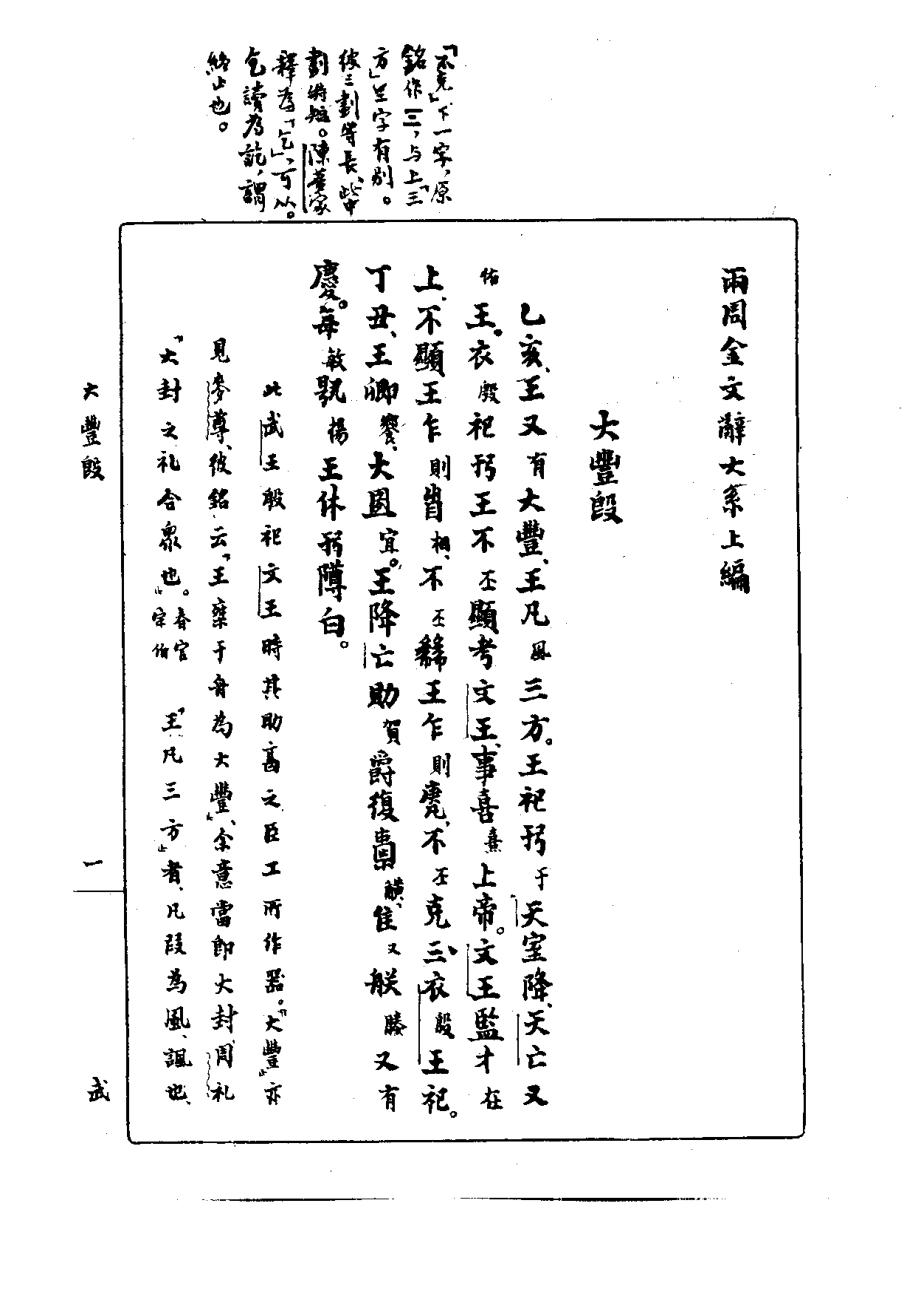 「不克」下一字，原
銘作三，与上「三
方」三字有別。
彼三劃等長，此中
劃特短。陳夢家
釋為「乞」，可从。
乞讀為訖，謂
終止也。
兩周金文辭大系上編
大豐𣪘
乙亥、王又有大豐、王凡風三方。王祀𢍰于天室降、天亡又
佑王。衣殷祀𢍰王不丕顯考文王、事喜熹上帝。文王監才在
上、不顯王乍則眚相、不丕王乍則賡、不丕克三、衣殷王祀。
丁丑、王卿饗、大宜。王降亡助賀爵復、隹又朕賸又有
慶。每敏揚王休𢍰白。
此武王殷祀文王時其助享之臣工所作器。「大豐」亦
見麥尊、彼銘云「王乘于舟為大豐」、余意當即大封、周礼
「大封之礼合衆也」。春官宗伯「王凡三方」者、凡叚為風、諷也、
大豐𣪘
一
武